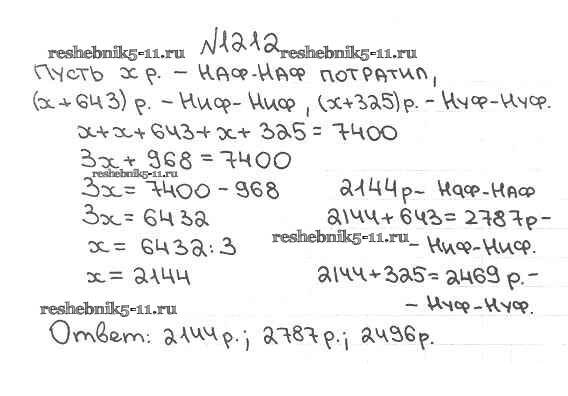 №1212
reshebnik5-11.ru reshebnik5-11.ru
Пусть x р. – НАФ-НАФ потратил,
(x+643) р. – Ниф-Ниф, (x+325)р. – Нуф-Нуф.
x+x+643+x+325=7400
3x+968=7400
reshebnik5-11.ru
3x=7400-968
3x=6432
x=6432:3
x=2144
2144р– Наф-НАФ
2144+643=2787р–
reshebnik5-11.ru
– Ниф-Ниф.
2144+325=2469 р.–
– Нуф-Нуф.
reshebnik5-11.ru
Ответ: 2144р.; 2787р.; 2496р.